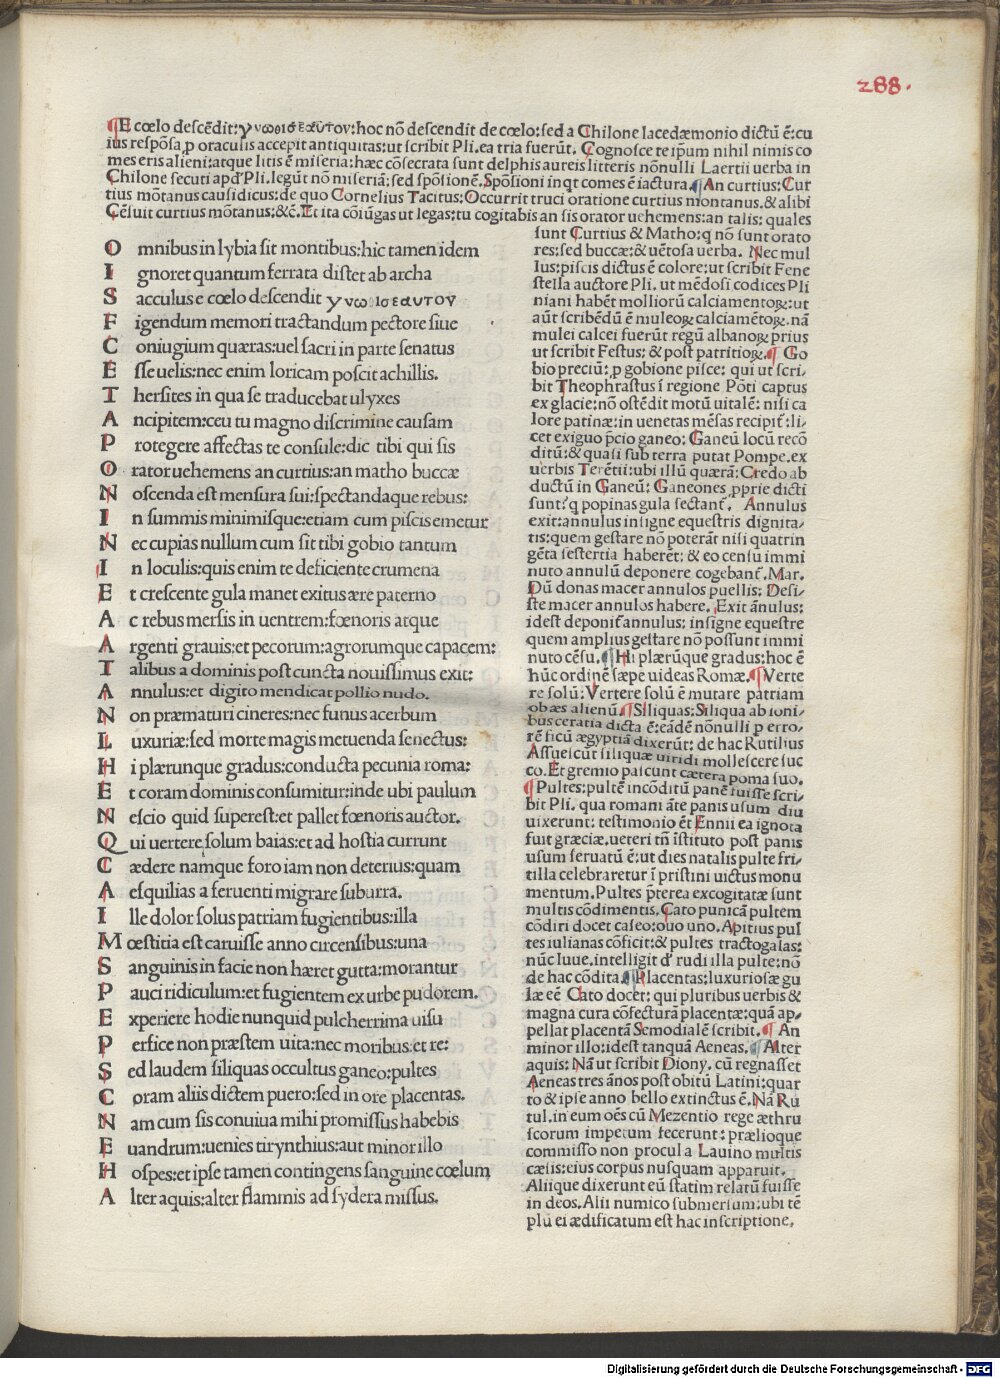 288.
¶E cœlo descēdit:γνωθι σεαυτον:hoc nō descendit de cœlo:sed a Chilone lacedæmonio dictū ē:cu
ius respōsa ꝓ oraculis accepit antiquitas:ut scribit Pli.ea tria fuerūt. Cognosce te ipsum nihil nimis co
mes eris alieni:atque litis ē miseria:hæc cōsecrata sunt delphis aureis litteris nōnulli Laertii uerba in
Chilone secuti apd' Pli.legūt nō miseriā:sed spōsionē.Spōsioni inqt comes ē iactura.¶An curtius:Cur
tius mōtanus causidicus:de quo Cornelius Tacitus:Occurrit truci oratione curtius montanus.& alibi
Cēsuit curtius mōtanus:&c̄.Et ita cōiūgas ut legas:tu cogitabis an sis orator uehemens:an talis: quales
O mnibus in lybia sit montibus:hic tamen idem
I gnoret quantum ferrata distet ab archa
S acculus e cœlo descendit γνωθισεαυτον
F igendum memori tractandum pectore siue
C oniugium quæras:uel sacri in parte senatus
E sse uelis:nec enim loricam poscit achillis.
T hersites in qua se traducebat ulyxes
A ncipitem:ceu tu magno discrimine causam
P rotegere affectas te consule:dic tibi qui sis
O rator uehemens an curtius:an matho buccæ
N oscenda est mensura sui:spectandaque rebus:
I n summis minimisque:etiam cum piscis emetur
N ec cupias nullum cum sit tibi gobio tantum
I n loculis:quis enim te deficiente crumena
E t crescente gula manet exitus ære paterno
A c rebus mersis in uentrem:fœnoris atque
A rgenti grauis:et pecorum:agrorumque capacem:
T alibus a dominis post cuncta nouissimus exit:
A nnulus:et digito mendicat pollio nudo.
N on præmaturi cineres:nec funus acerbum
L uxuriæ:sed morte magis metuenda senectus:
H i plærunque gradus:conducta pecunia roma:
E t coram dominis consumitur:inde ubi paulum
N escio quid superest:et pallet fœnoris auctor.
Q ui uertere solum baias:et ad hostia currunt
C ædere namque foro iam non deterius:quam
A esquilias a feruenti migrare suburra.
I lle dolor solus patriam fugientibus:illa
M œstitia est caruisse anno circensibus:una
S anguinis in facie non hæret gutta:morantur
P auci ridiculum:et fugientem ex urbe pudorem.
E xperiere hodie nunquid pulcherrima uisu
P erfice non præstem uita:nec moribus:et re:
S ed laudem siliquas occultus ganeo:pultes
C oram aliis dictem puero:sed in ore placentas.
N am cum sis conuiua mihi promissus habebis
E uandrum:uenies tirynthius:aut minor illo
H ospes:et ipse tamen contingens sanguine cœlum
A lter aquis:alter flammis ad sydera missus.
sunt Curtius & Matho:q nō sunt orato
res:sed buccæ:& uētosa uerba. Nec mul
lus:piscis dictus ē colore:ut scribit Fene
stella auctore Pli. ut mēdosi codices Pli
niani habēt molliorū calciamentoꝝ:ut
aūt scribēdū ē muleoꝝ calciamētoꝝ.nā
mulei calcei fuerūt regū albanoꝝ prius
ut scribit Festus: & post patritioꝝ.¶ Go
bio preciū: ꝓ gobione pisce: qui ut scri-
bit Theophrastus ī regione Pōti captus
ex glacie:nō ostēdit motū uitalē: nisi ca
lore patinæ:in uenetas mēsas recipit̄:li-
cet exiguo p̄cio ganeo: Ganeū locū recō
ditū:& quasi sub terra putat Pompe.ex
uerbis Terētii:ubi illū quærā: Credo ab
ductū in Ganeū: Ganeones ꝓprie dicti
sunt:q popinas gula sectant̄. Annulus
exit:annulus insigne equestris dignita-
tis:quem gestare nō poterāt nisi quatrin
gēta sestertia haberēt: & eo censu immi
nuto annulū deponere cogebant̄.Mar.
Dū donas macer annulos puellis: Desi-
ste macer annulos habere. Exit ānulus:
idest deponit̄ annulus: insigne equestre
quem amplius gestare nō possunt immi
nuto cēsu.¶Hi plærūque gradus:hoc ē
hūc ordinē sæpe uideas Romæ.¶Verte
re solū: Vertere solū ē mutare patriam
ob æs alienū.¶Siliquas: Siliqua ab ioni-
bus ceratia dicta ē:eādē nōnulli ꝑ erro-
rē ficū ægyptiā dixerūt: de hac Rutilius
Assuescūt siliquæ uiridi mollescere suc
co.Et gremio pascunt cætera poma suo.
¶Pultes:pultē incōditū panē fuisse scri-
bit Pli. qua romani āte panis usum diu
uixerunt: testimonio ēt Ennii ea ignota
fuit græciæ.ueteri tn̄ īstituto post panis
usum seruatū ē:ut dies natalis pulte fri-
tilla celebraretur ī pristini uictus monu
mentum.Pultes p̄terea excogitatæ sunt
multis cōdimentis.Cato punicā pultem
cōdiri docet caseo:ouo uno.Apitius pul
tes iulianas cōficit:& pultes tractogalas:
nūc luue.intelligit d' rudi illa pulte:nō
de hac cōdita.¶Placentas:luxuriosæ gu
læ eē Cato docet: qui pluribus uerbis &
magna cura cōfecturā placentæ:quā ap-
pellat placentā Semodialē scribit.¶ An
minor illo:idest tanquā Aeneas.¶Alter
aquis: Nā ut scribit Diony. cū regnasset
Aeneas tres ānos post obitū Latini:quar
to & ipse anno bello extinctus ē.Nā Ru
tul.in eum oēs cū Mezentio rege æthru
scorum impetum fecerunt: prælioque
commisso non procul a Lauino multis
cæsis:eius corpus nusquam apparuit.
Aliique dixerunt eū statim relatū fuisse
in deos.Alii numico submersum:ubi tē
plū ei ædificatum est hac inscriptione.
Digitalisierung gefördert durch die Deutsche Forschungsgemeinschaft - DFG